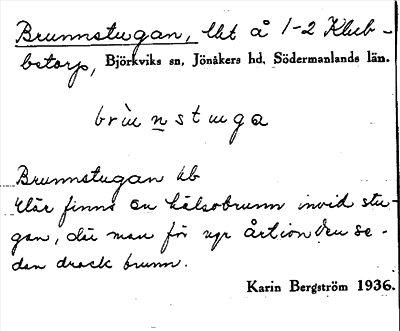 Brunnstugan, lht å 1-2 Klub-
betorp, Björkviks sn, Jönåkers hd, Södermanlands län.
brùnstuga
Brunnstugan hb
Här finns en hälsobrunn invid stu-
gan, där man för ngr årtionden se-
dan drack brunn.
Karin Bergström 1936.